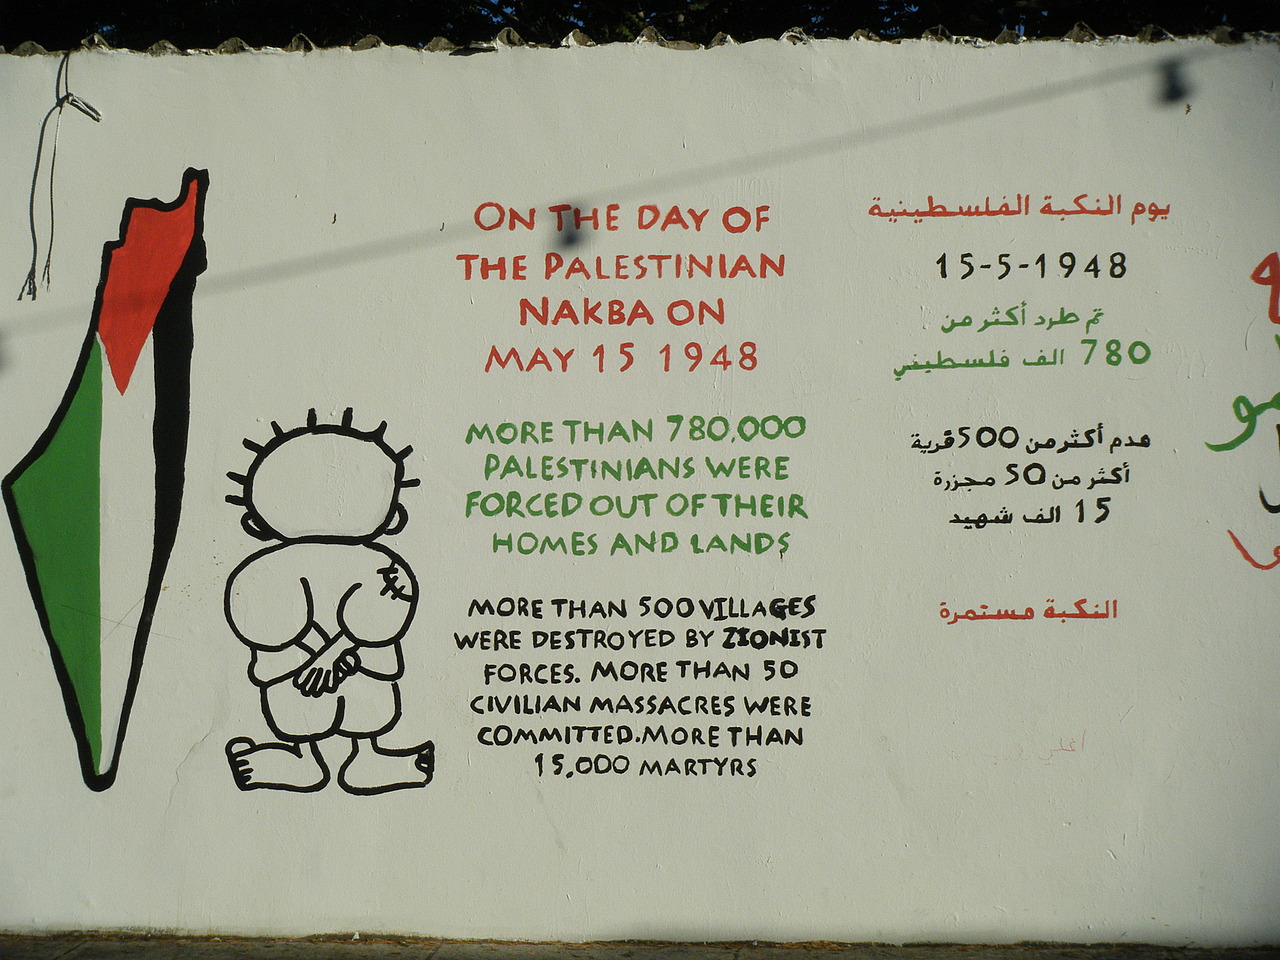 ON THE DAY OF
THE PALESTINIAN
NAKBA ON
MAY 15 1948
MORE THAN 780,000
PALESTINIANS WERE
FORCED OUT OF THEIR
HOMES AND LANDS
MORE THAN 500 VILLAGES
WERE DESTROYED BY ZIONIST
FORCES. MORE THAN 50
CIVILIAN MASSACRES WERE
COMMITTED. MORE THAN
15,000 MARTYRS
يوم النكبة الفلسطينية
15-5-1948
تم طرد أكثر من
780 الف فلسطيني
هدم أكثر من 500 قرية
أكثر من 50 مجزرة
15 الف شهيد
النكبة مستمرة